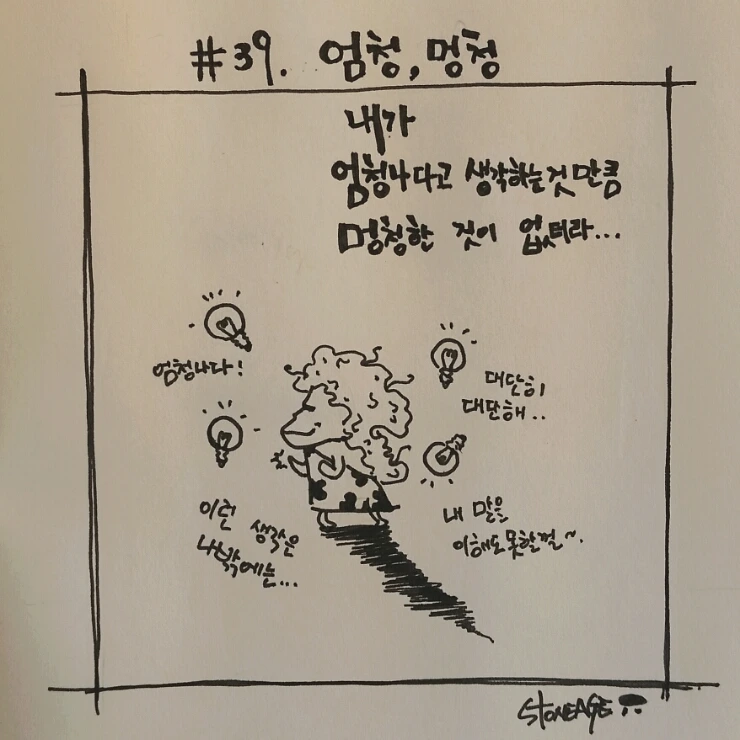 #39. 엄청, 멍청
내가
엄청나다고 생각하는것 만큼
멍청한 것이 없더라...
엄청나다!
대단히
대단해..
이런 생각은
나밖에는...
내 말을
이해도 못할껄~.
STONEAGE